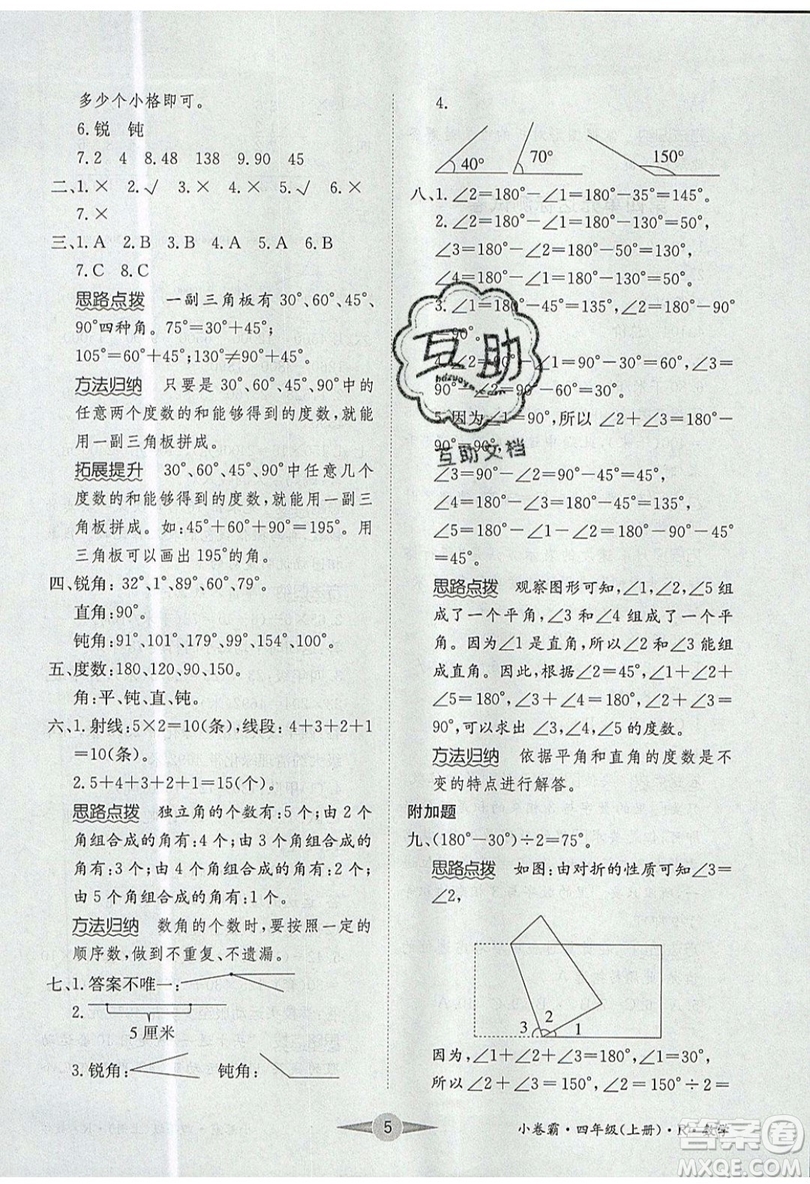 多少个小格即可。
6.锐 钝
7.2 4 8.48 138 9.90 45
二、1.× 2.√ 3.× 4.× 5.√ 6.√
7.×
三、1.A 2.B 3.B 4.A 5.A 6.B
7.C 8.C
思路点拨 一副三角板有30°、60°、45°、
90°四种角。75°=30°+45°;
105°=60°+45°;130°≠90°+45°。
方法归纳 只要是30°、60°、45°、90°中的
任意两个度数的和能够得到的度数,就能
用一副三角板拼成。
拓展提升 30°、60°、45°、90°中任意几个
度数的和能够得到的度数,就能用一副三
角板拼成。如:45°+60°+90°=195°。用
三角板可以画出195°的角。
四、锐角:32°、1°、89°、75°、60°。
直角:90°。
钝角:91°、101°、170°、99°、179°、100°。
五、度数:180、120、90、150。
角:平、钝、直、钝。
六、1.射线:5×2=10(条),线段:4+3+2+1
=10(条)。
2.5+4+3+2+1=15(个)。
思路点拨 独立角的个数有:5个;由2个
角组合成的角有:4个;由3个角组合成的
角有:3个;由4个角组合成的角有:2个;
由5个角组合成的角有:1个。
方法归纳 数角的个数时,要按照一定的
顺序数,做到不重复、不遗漏。
七、1.答案不唯一:
2.
5厘米
3.锐角: 钝角:
4.
40° 70° 150°
八、1.∠2=180°-∠1=180°-35°=145°。
2.∠2=180°-∠1=180°-50°=130°,
∠3=180°-∠2=180°-130°=50°,
∠4=180°-∠1=180°-50°=130°。
3.∠1=180°-90°=90°
=90°。
4.∠2=90°-∠1=90°-60°=30°,∠3=
90°-∠2=90°-30°=60°。
5.因为∠1=90°,所以∠2+∠3=180°-
90°=90°。
∠3=90°-∠2=90°-45°=45°,
∠4=90°-∠3=90°-45°=45°,
∠5=180°-∠1-∠2=180°-90°-45°
=45°。
思路点拨 观察图形可知,∠1、∠2、∠5组
成了一个平角,∠3和∠4组成了一个直
角。因为∠1是直角,所以∠2和∠5能组
成一个直角。因为∠1、∠2、∠3也能组成
一个平角,根据∠1=90°,所以∠2+∠3=
90°,可以求出∠3、∠4、∠5的度数。
方法归纳 依据平角和直角的度数是不
变的特点进行解答。
附加题
九、(180°-30°)÷2=75°。
思路点拨 如图:由对折的性质可知∠3=
∠2,
3 2 1
因为,∠1+∠2+∠3=180°,∠1=30°,
所以∠2+∠3=150°,∠2=150°÷2=
5
小卷霸·四年级(上册)·R·数学
互助
hdzuoye.com
互助文档
答案圈
MXQE.COM